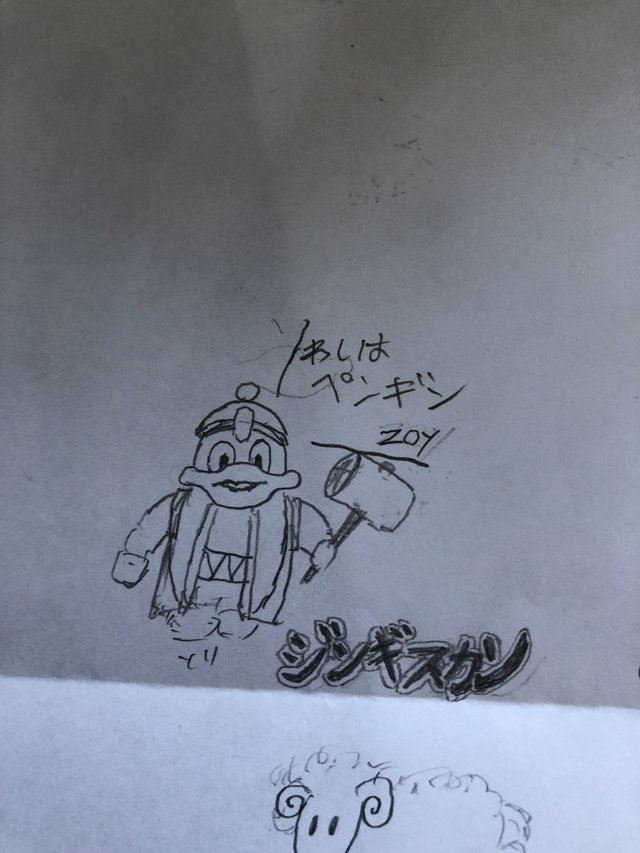 わしは
ペンギン
ZOY
とり
ジンギスカン